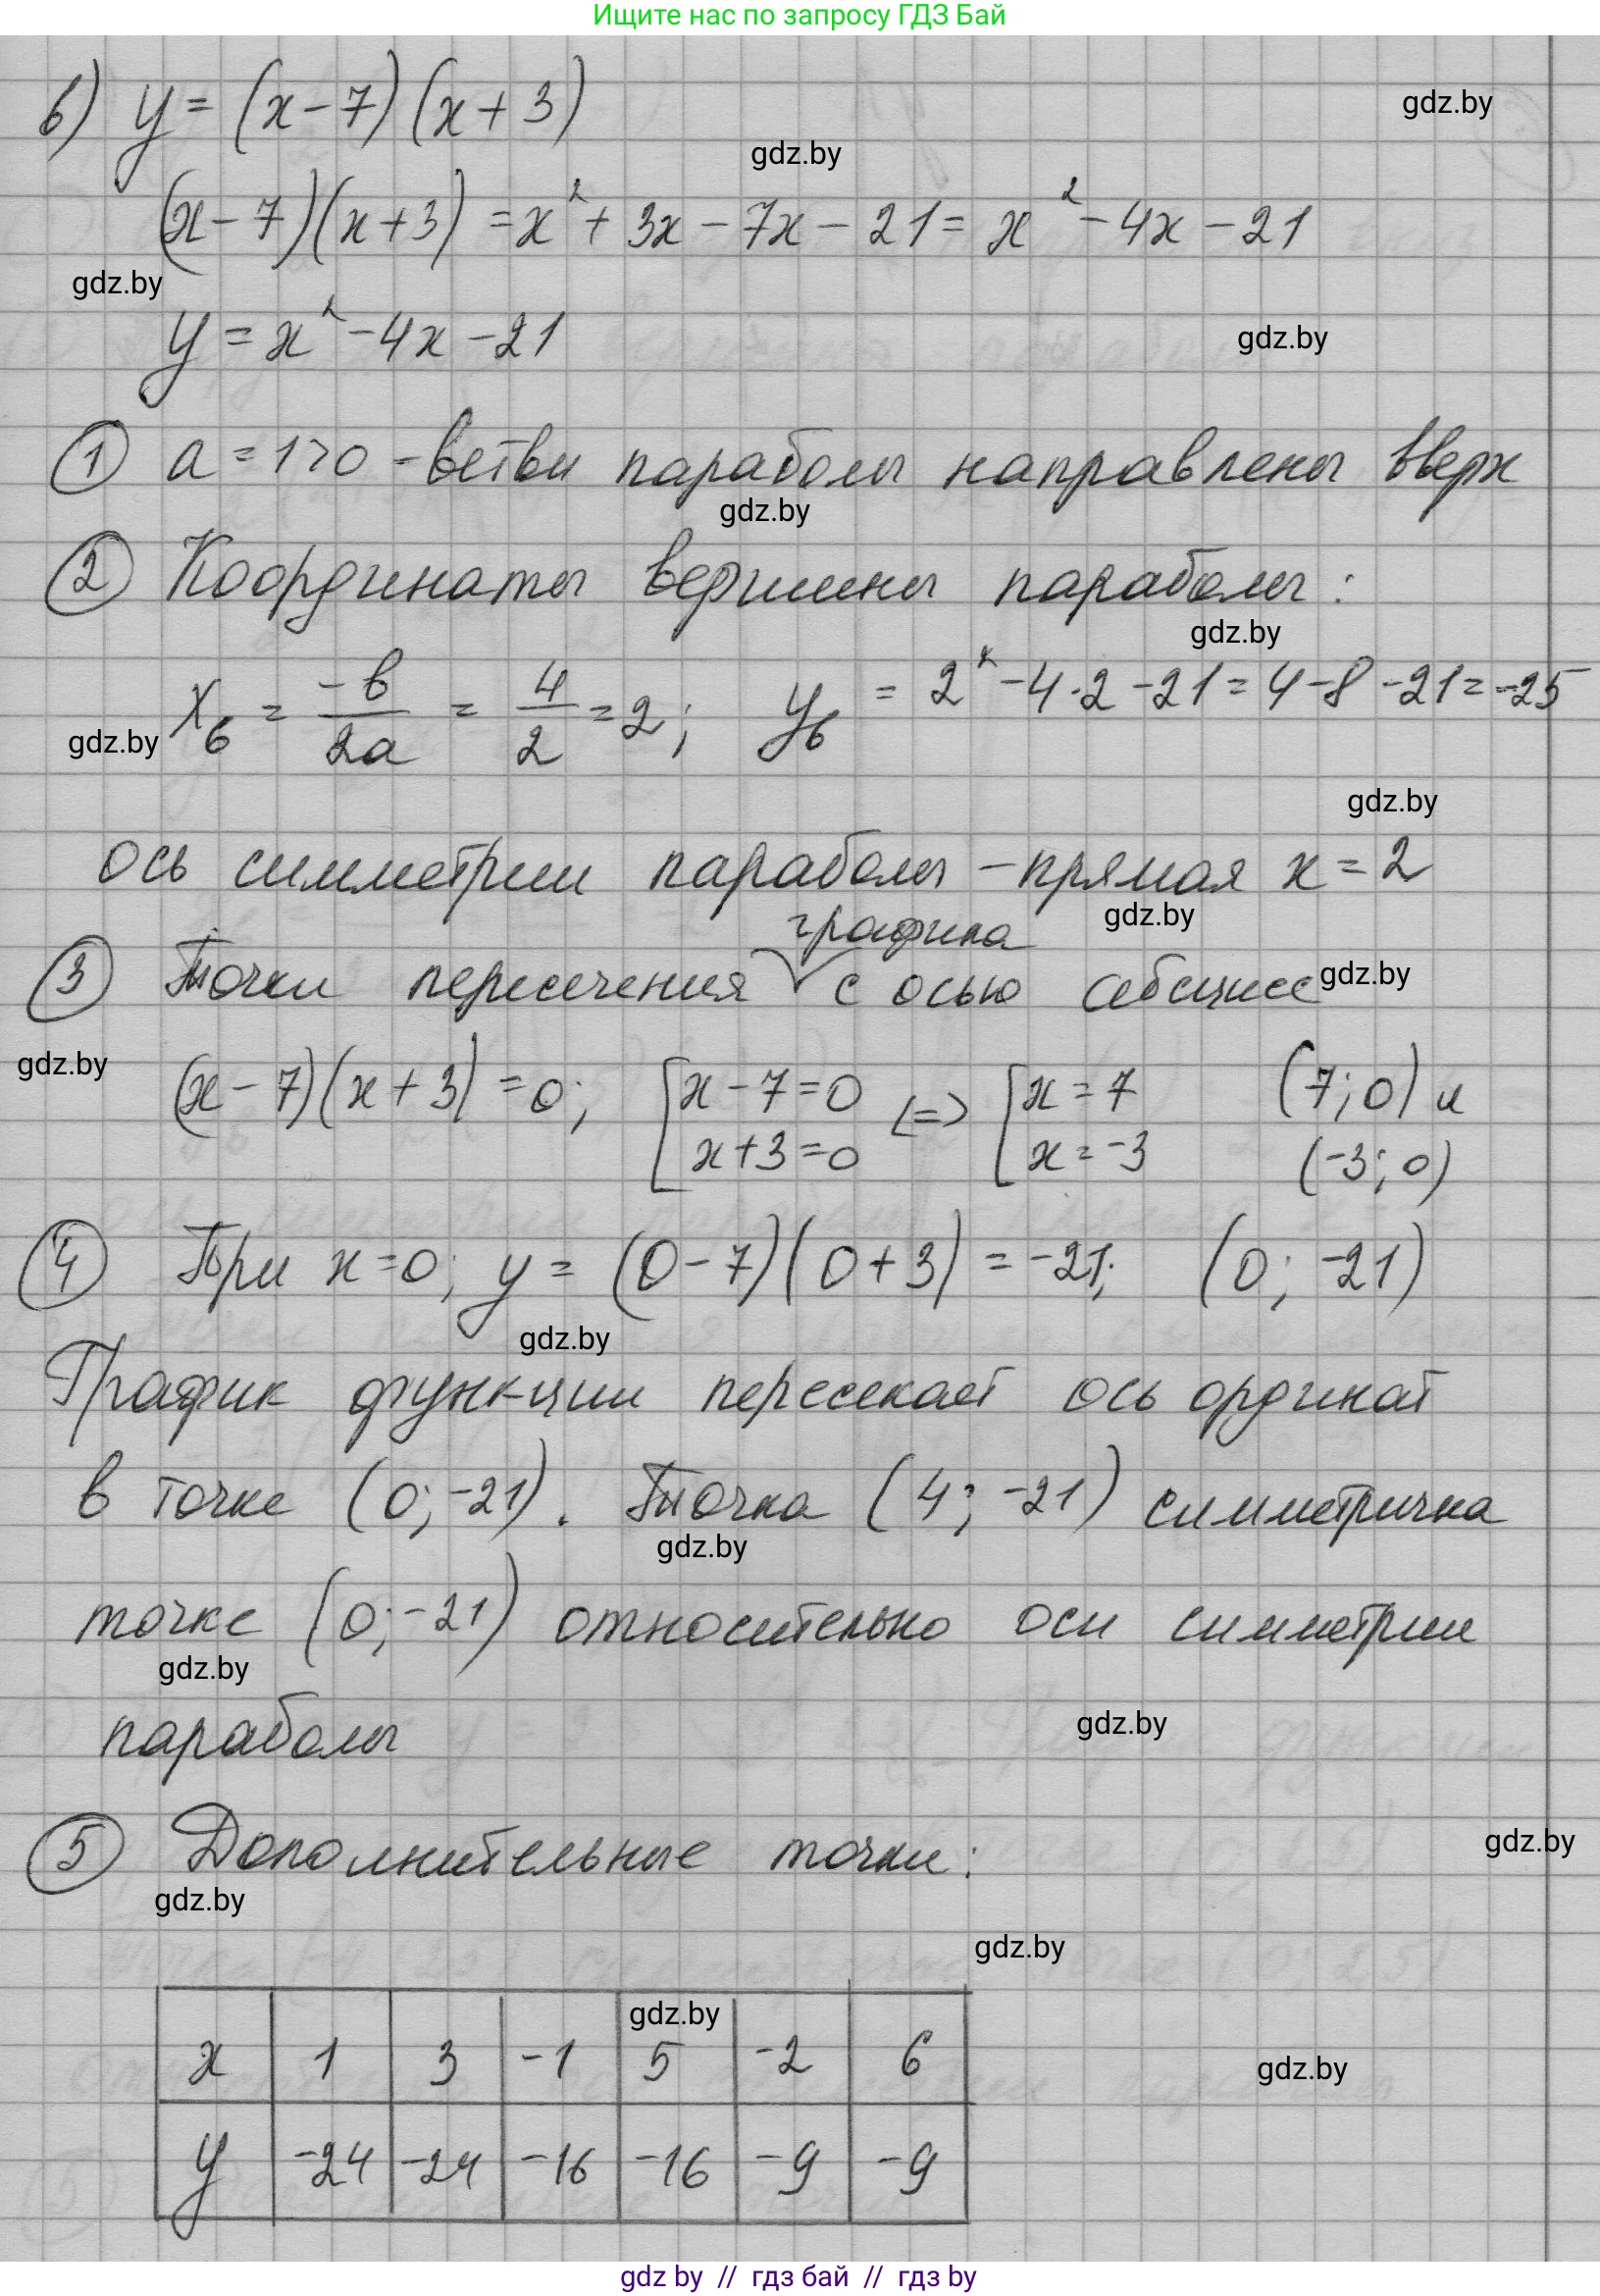 Ищите нас по запросу ГДЗ Бай
в) y = (x - 7)(x + 3)
gdz.by
gdz.by
(x - 7)(x + 3) = x² + 3x - 7x - 21 = x² - 4x - 21
gdz.by
y = x² - 4x - 21
gdz.by
① a = 1 > 0 - ветви параболы направлены вверх
gdz.by
② Координаты вершины параболы:
gdz.by
xв = -b/2a = 4/2 = 2; yв = 2² - 4·2 - 21 = 4 - 8 - 21 = -25
gdz.by
gdz.by
ось симметрии параболы - прямая x = 2
gdz.by
графика
③ Точки пересечения с осью абсцисс
gdz.by
gdz.by
(x - 7)(x + 3) = 0; [x - 7 = 0 <=> [x = 7 (7; 0) и
x + 3 = 0 x = -3 (-3; 0)
④ При x = 0; y = (0 - 7)(0 + 3) = -21; (0; -21)
gdz.by
График функции пересекает ось ординат
в точке (0; -21). Точка (4; -21) симметрична
gdz.by
точке (0; -21) относительно оси симметрии
gdz.by
параболы
gdz.by
⑤ Дополнительные точки:
gdz.by
gdz.by
gdz.by
gdz.by
x 1 3 -1 5 -2 6
gdz.by
y -24 -24 -16 -16 -9 -9
gdz by // гдз бай // гдз by